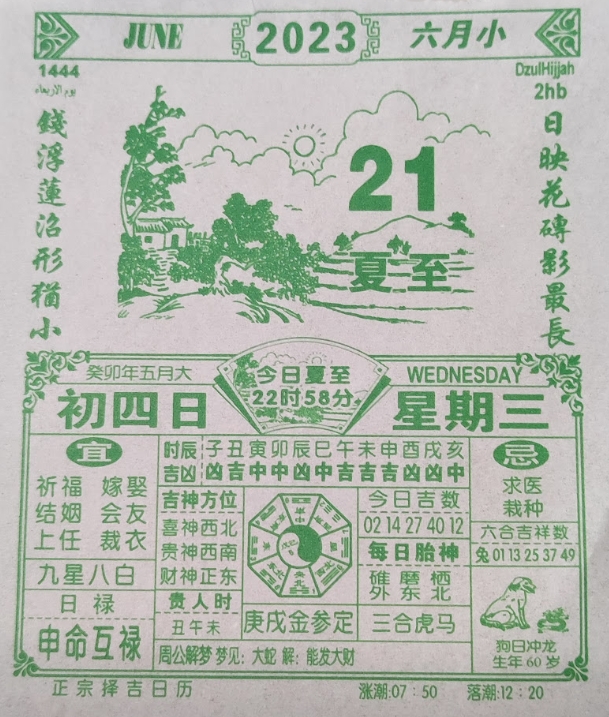 JUNE 2023 六月小
1444
يوم الاربعاء
DzulHijjah
2hb
日映花磚影最長
錢浮蓮沼形猶小
21
夏至
癸卯年五月大
今日夏至
22时58分
WEDNESDAY
初四日
星期三
宜
祈福 嫁娶
结姻 会友
上任 裁衣
九星八白
日禄
申命互禄
时辰 子丑寅卯辰巳午未申酉戌亥
吉凶 凶吉中中凶中吉吉吉凶凶中
吉神方位
喜神西北
贵神西南
财神正东
贵人时
丑午未
庚戌金参定
今日吉数
02 14 27 40 12
每日胎神
碓磨栖
外东北
三合虎马
周公解梦 梦见：大蛇 解：能发大财
忌
求医
栽种
六合吉祥数
兔 01 13 25 37 49
狗日冲龙
生年 60 岁
正宗择吉日历
涨潮:07：50 落潮:12：20